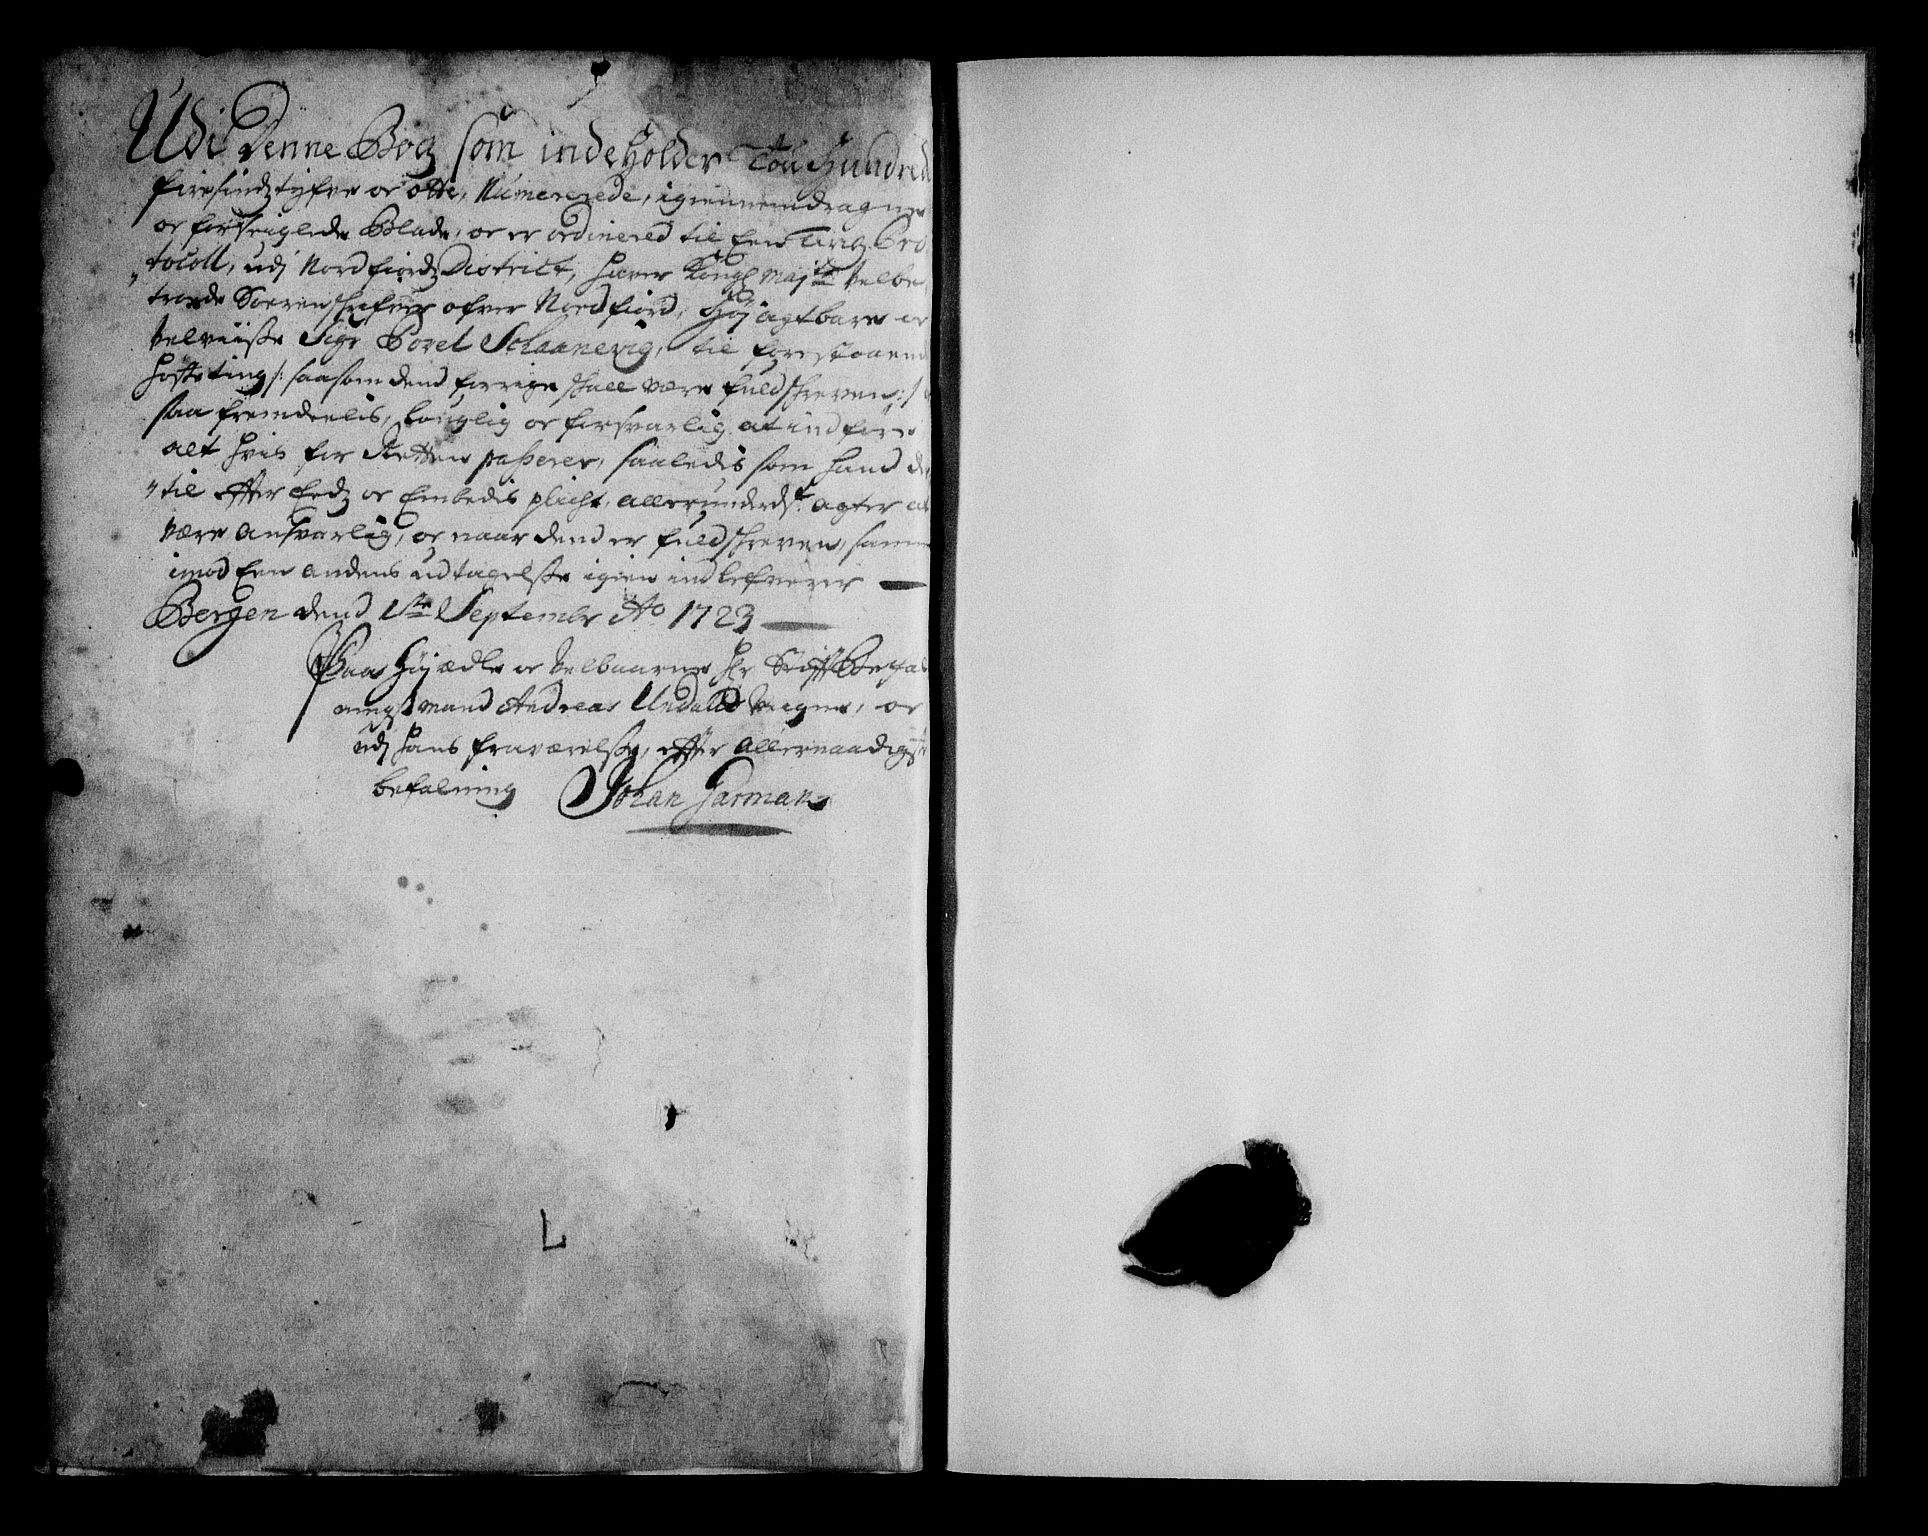 Udi Denne Bog som indeholder Tou Hundred
firesindztyfve oc otte, Numererede, igiennemdragne
oc forseiglede Blade, oc er ordinered til Een Ting Pro
tocoll, udj Nordfiordz District, haver Kongl Maj:ts Velbe,
troede Soerenskrifver ofver Nordfiord, Høj agtbare oc
Velviisse Sigr Povel Schaanevig, til forestaaend
Høste ting /: saasom dend forrige skall være fuldskreven :/
saa fremdeelis, louglig oc forsvarlig at indføre
alt hvis for Retten passerer, saaledis som hand der
"til efter Eedz oc Embedis plicht, allerunderdt. agter at
være ansvarlig, oc naar dend er fuldskreven, samme
imod Een andens udtagelse igien indlefverer
Bergen dend 1ste Septembr Ao 1723
Paa Høj ædle oc Velbaarne Hr Stiftbefal
ningsmand Andreas Undalls Veigne, oc
udj Hans fraværelse, efter allernaadigste
befalning Johan Garman
L